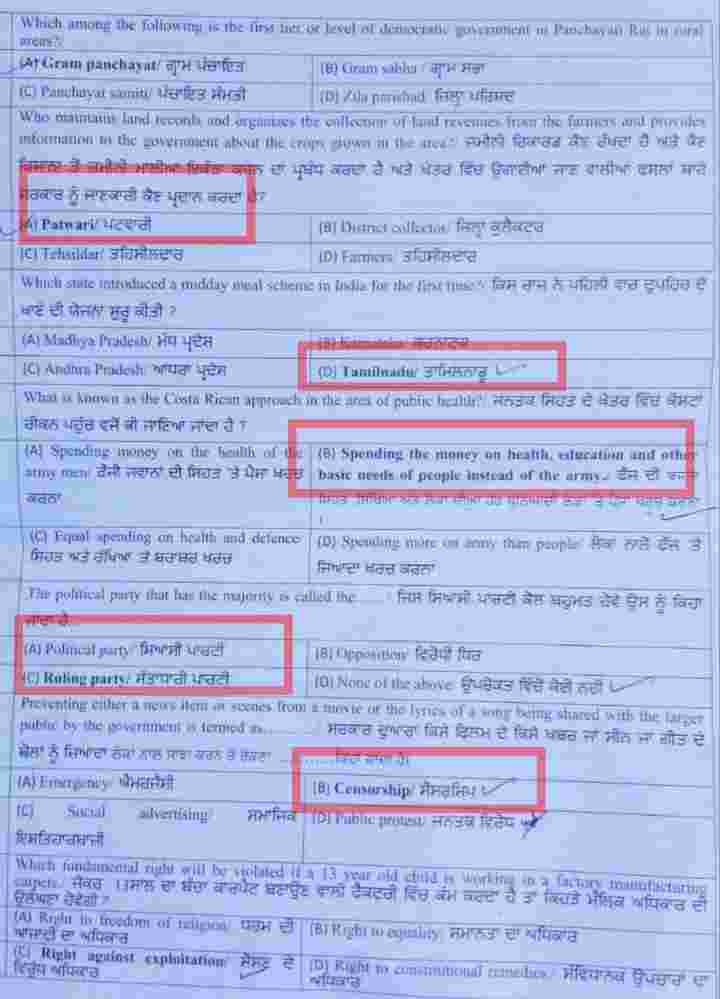 Which among the following is the first tier or level of democratic government in Panchayati Raj in rural
areas?/
(A) Gram panchayat/ ਗ੍ਰਾਮ ਪੰਚਾਇਤ
(B) Gram sabha / ਗ੍ਰਾਮ ਸਭਾ
(C) Panchayat samiti/ ਪੰਚਾਇਤ ਸੰਮਤੀ
(D) Zila parishad/ ਜ਼ਿਲ੍ਹਾ ਪਰਿਸ਼ਦ
Who maintains land records and organizes the collection of land revenues from the farmers and provides
information to the government about the crops grown in the area?/ ਜ਼ਮੀਨੀ ਰਿਕਾਰਡ ਕੌਣ ਰੱਖਦਾ ਹੈ ਅਤੇ ਕੌਣ
ਕਿਸਾਨਾਂ ਤੋਂ ਜ਼ਮੀਨੀ ਮਾਲੀਆ ਇਕੱਠਾ ਕਰਨ ਦਾ ਪ੍ਰਬੰਧ ਕਰਦਾ ਹੈ ਅਤੇ ਖੇਤਰ ਵਿੱਚ ਉਗਾਈਆਂ ਜਾਣ ਵਾਲੀਆਂ ਫਸਲਾਂ ਬਾਰੇ
ਸਰਕਾਰ ਨੂੰ ਜਾਣਕਾਰੀ ਕੌਣ ਪ੍ਰਦਾਨ ਕਰਦਾ ਹੈ?
(A) Patwari/ ਪਟਵਾਰੀ
(B) District collector/ ਜ਼ਿਲ੍ਹਾ ਕੁਲੈਕਟਰ
(C) Tehsildar/ ਤਹਿਸੀਲਦਾਰ
(D) Farmers/ ਤਹਿਸੀਲਦਾਰ
Which state introduced a midday meal scheme in India for the first time?/ ਕਿਸ ਰਾਜ ਨੇ ਪਹਿਲੀ ਵਾਰ ਦੁਪਹਿਰ ਦੇ
ਖਾਣੇ ਦੀ ਯੋਜਨਾ ਸ਼ੁਰੂ ਕੀਤੀ ?
(A) Madhya Pradesh/ ਮੱਧ ਪ੍ਰਦੇਸ਼
(B) Karnataka/ ਕਰਨਾਟਕ
(C) Andhra Pradesh/ ਆਂਧਰਾ ਪ੍ਰਦੇਸ਼
(D) Tamilnadu/ ਤਾਮਿਲਨਾਡੂ
What is known as the Costa Rican approach in the area of public health?/ ਜਨਤਕ ਸਿਹਤ ਦੇ ਖੇਤਰ ਵਿੱਚ ਕੋਸਟਾ
ਰੀਕਨ ਪਹੁੰਚ ਵਜੋਂ ਕੀ ਜਾਣਿਆ ਜਾਂਦਾ ਹੈ ?
(A) Spending money on the health of the
army men/ ਫੌਜੀ ਜਵਾਨਾਂ ਦੀ ਸਿਹਤ 'ਤੇ ਪੈਸਾ ਖਰਚ
ਕਰਨਾ
(B) Spending the money on health, education and other
basic needs of people instead of the army./ ਫੌਜ ਦੀ ਬਜਾਏ
ਸਿਹਤ, ਸਿੱਖਿਆ ਅਤੇ ਲੋਕਾਂ ਦੀਆਂ ਹੋਰ ਬੁਨਿਆਦੀ ਲੋੜਾਂ 'ਤੇ ਪੈਸਾ ਖਰਚ ਕਰਨਾ
।
(C) Equal spending on health and defence/
ਸਿਹਤ ਅਤੇ ਰੱਖਿਆ 'ਤੇ ਬਰਾਬਰ ਖਰਚ
(D) Spending more on army than people/ ਲੋਕਾਂ ਨਾਲੋਂ ਫੌਜ 'ਤੇ
ਜ਼ਿਆਦਾ ਖਰਚ ਕਰਨਾ
The political party that has the majority is called the...... / ਜਿਸ ਸਿਆਸੀ ਪਾਰਟੀ ਕੋਲ ਬਹੁਮਤ ਹੋਵੇ ਉਸ ਨੂੰ ਕਿਹਾ
ਜਾਂਦਾ ਹੈ...
(A) Political party/ ਸਿਆਸੀ ਪਾਰਟੀ
(B) Opposition/ ਵਿਰੋਧੀ ਧਿਰ
(C) Ruling party/ ਸੱਤਾਧਾਰੀ ਪਾਰਟੀ
(D) None of the above/ ਉਪਰੋਕਤ ਵਿੱਚੋਂ ਕੋਈ ਨਹੀਂ
Preventing either a news item or scenes from a movie or the lyrics of a song being shared with the larger
public by the government is termed as........... / ਸਰਕਾਰ ਦੁਆਰਾ ਕਿਸੇ ਫਿਲਮ ਦੇ ਕਿਸੇ ਖਬਰ ਜਾਂ ਸੀਨ ਜਾਂ ਗੀਤ ਦੇ
ਬੋਲਾਂ ਨੂੰ ਜ਼ਿਆਦਾ ਲੋਕਾਂ ਨਾਲ ਸਾਂਝਾ ਕਰਨ ਤੋਂ ਰੋਕਣਾ ............ ਕਿਹਾ ਜਾਂਦਾ ਹੈ।
(A) Emergency/ ਐਮਰਜੈਂਸੀ
(B) Censorship/ ਸੈਂਸਰਸ਼ਿਪ
(C) Social advertising/ ਸਮਾਜਿਕ
ਇਸ਼ਤਿਹਾਰਬਾਜ਼ੀ
(D) Public protest/ ਜਨਤਕ ਵਿਰੋਧ
Which fundamental right will be violated if a 13 year old child is working in a factory manufacturing
carpets./ ਜੇਕਰ 13ਸਾਲ ਦਾ ਬੱਚਾ ਕਾਰਪੇਟ ਬਣਾਉਣ ਵਾਲੀ ਫੈਕਟਰੀ ਵਿੱਚ ਕੰਮ ਕਰਦਾ ਹੈ ਤਾਂ ਕਿਹੜੇ ਮੌਲਿਕ ਅਧਿਕਾਰ ਦੀ
ਉਲੰਘਣਾ ਹੋਵੇਗੀ ?
(A) Right to freedom of religion/ ਧਰਮ ਦੀ
ਆਜ਼ਾਦੀ ਦਾ ਅਧਿਕਾਰ
(B) Right to equality/ ਸਮਾਨਤਾ ਦਾ ਅਧਿਕਾਰ
(C) Right against exploitation/ ਸ਼ੋਸ਼ਣ ਦੇ
ਵਿਰੁੱਧ ਅਧਿਕਾਰ
(D) Right to constitutional remedies/ ਸੰਵਿਧਾਨਕ ਉਪਚਾਰਾਂ ਦਾ
ਅਧਿਕਾਰ